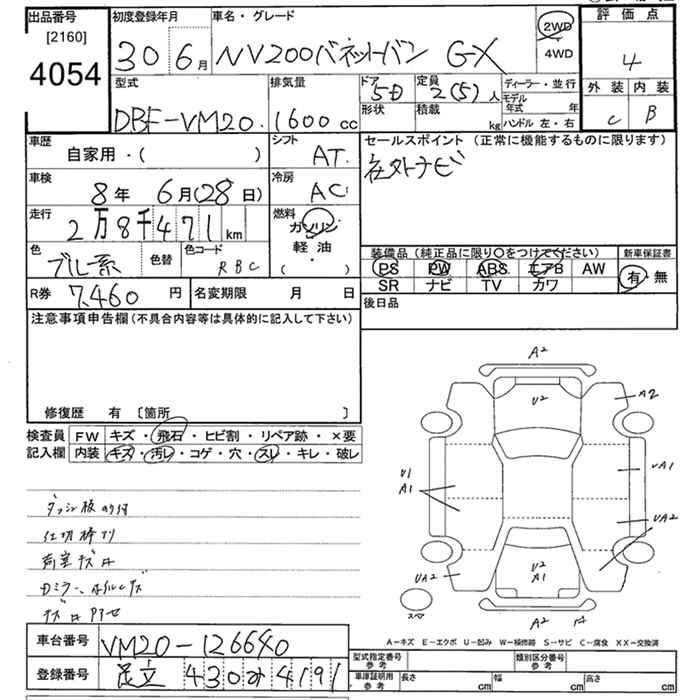 出品番号
[2160]
4054
初度登録年月
30 6月
車名・グレード
NV200バネットバン G-X
2WD
4WD
評価点
4
外装 内装
C B
型式
DBF-VM20
排気量
1600 cc
ドア 5D
形状
定員 2(5)人
積載 kg
ディーラー・並行
モデル年式 年
ハンドル 左・右
車歴
自家用・( )
シフト
AT
セールスポイント (正常に機能するものに限ります)
社外ナビ
車検
8年 6月(28日)
冷房
AC
走行
2万8千471km
燃料
ガソリン
軽油
( )
色
ブルー系
色替
色コード
RBC
装備品 (純正品に限り○をつけてください)
PS PW ABS エアB AW
SR ナビ TV カワ
新車保証書
有・無
R券 7,460円
名変期限 月 日
後日品
注意事項申告欄 (不具合内容等は具体的に記入して下さい)
修復歴 有 [箇所 ]
検査員記入欄
FW キズ・飛石・ヒビ割・リペア跡・×要
内装 キズ・汚レ・コゲ・穴・スレ・キレ・破レ
A2
U2
A2
U1
A1
UA1
UA2
UA2
U2
A1
A2
スペア
A−キズ E−エクボ U−凹み W−補修跡 S−サビ C−腐食 XX−交換済
車台番号 VM20-126640
登録番号 足立 430 み 4191
型式指定番号 参考
類別区分番号 参考
車庫証明用 参考
長さ cm
幅 cm
高さ cm